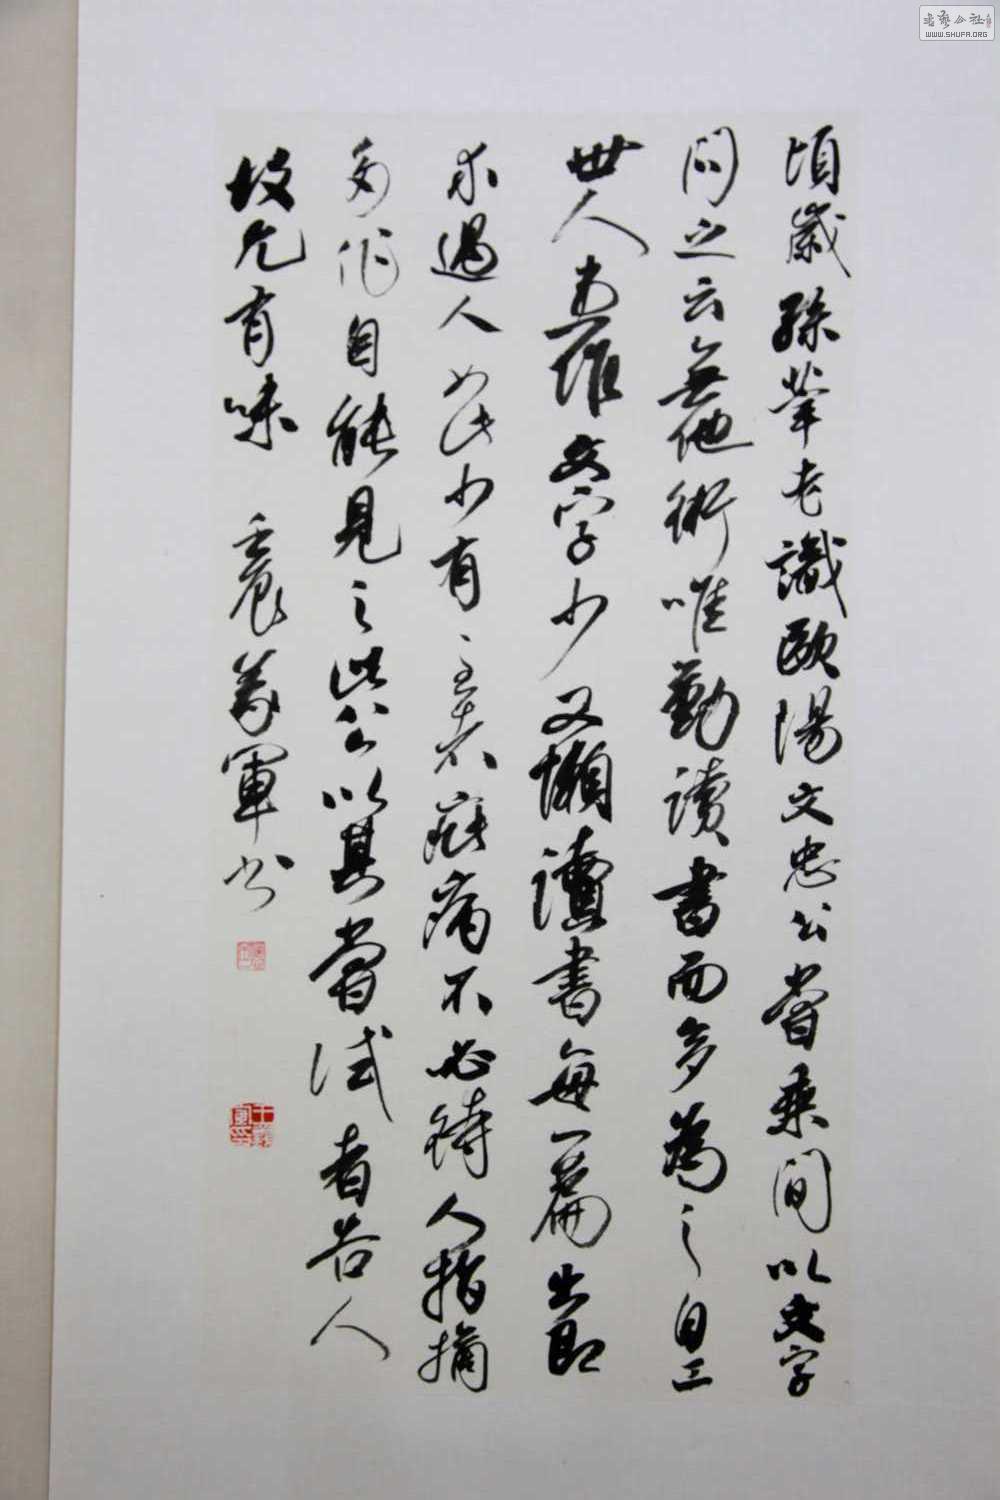 頃歲孫莘老識歐陽文忠公嘗乘間以文字
問之云無他術唯勤讀書而多為之自工
世人患作文字少又懶讀書每一篇出即
求過人如此少有至者疵病不必待人指摘
多作自能見之此公以其嘗試者告人
故尤有味 壬辰義軍書
王義軍印
书艺公社
WWW.SHUFA.ORG